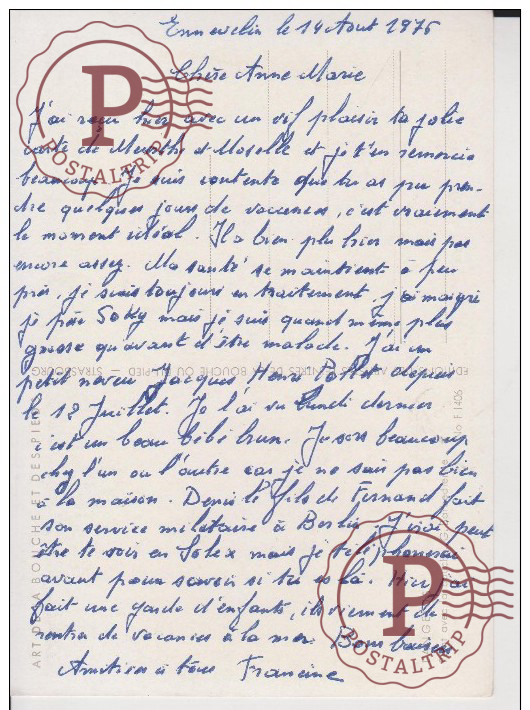 Ennevelin le 14 Août 1976
Chère Anne Marie
J'ai reçu hier avec un vif plaisir ta jolie
carte de Meurthe et Moselle et je t'en remercie
beaucoup. Je suis contente que tu as pu pren-
dre quelques jours de vacances, c'est vraiment
le moment idéal. Il a bien plu hier mais pas
encore assez. Ma santé se maintient à peu
près, je suis toujours en traitement, j'ai maigri
je pèse 50kg mais je suis quand même plus
grosse qu'avant d'être malade. J'ai un
petit neveu Jacques Henri depuis
le 12 Juillet. Je l'ai vu Lundi dernier
c'est un beau bébé brun. Je sors beaucoup
chez l'un ou l'autre car je ne sais pas bien
à la maison. Denis le fils de Fernand fait
son service militaire à Berlin. J'irai peut
être te voir en Solex mais je téléphonerai
avant pour savoir si tu es là. Hier j'ai
fait une garde d'enfants, ils viennent de
rentrer de vacances à la mer. Bons baisers
Amitiés à tous Francine
POSTALTRIP
POSTALTRIP
ART DE LA BOUCHE ET DES PIEDS
STRASBOURG
No F1406